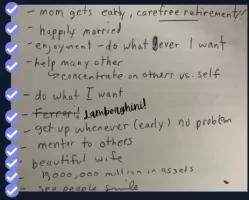 - mom gets early, carefree retirement!!
- happily married
- enjoyment - do whatever I want
- help many other
concentrate on others vs. self
- do what I want
- Ferrari Lamborghini!
- get up whenever (early) no problem
- mentor to others
- beautiful wife
- 19,000,000 million in assets
- see people smile